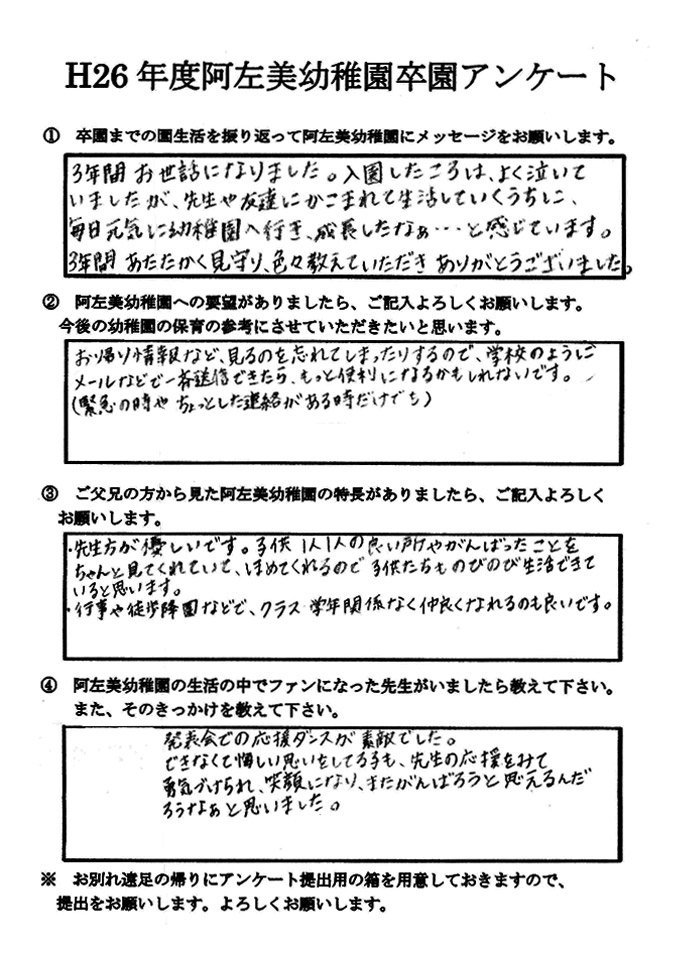 H26 年度阿左美幼稚園卒園アンケート
① 卒園までの園生活を振り返って阿左美幼稚園にメッセージをお願いします。
3年間 お世話になりました。入園したころは、よく泣いて
いましたが、先生や友達にかこまれて生活していくうちに、
毎日元気に幼稚園へ行き、成長したなぁ…と感じています。
3年間 あたたかく見守り、色々教えていただき ありがとうございました。
② 阿左美幼稚園への要望がありましたら、ご記入よろしくお願いします。
今後の幼稚園の保育の参考にさせていただきたいと思います。
お帰り情報など、見るのを忘れてしまったりするので、学校のように
メールなどで一斉送信できたら、もっと便利になるかもしれないです。
(緊急の時や ちょっとした連絡がある時だけでも)
③ ご父兄の方から見た阿左美幼稚園の特長がありましたら、ご記入よろしく
お願いします。
・先生方が優しいです。子供 1人1人の良い所やがんばったことを
ちゃんと見てくれていて、ほめてくれるので 子供たちものびのび生活できて
いると思います。
・行事や徒歩降園などで、クラス 学年関係なく仲良くなれるのも良いです。
④ 阿左美幼稚園の生活の中でファンになった先生がいましたら教えて下さい。
また、そのきっかけを教えて下さい。
発表会での応援ダンスが素敵でした。
できなくて悔しい思いをしてる子も、先生の応援をみて
勇気づけられ、笑顔になり、またがんばろうと思えるんだ
ろうなぁと思いました。
※ お別れ遠足の帰りにアンケート提出用の箱を用意しておきますので、
提出をお願いします。よろしくお願いします。